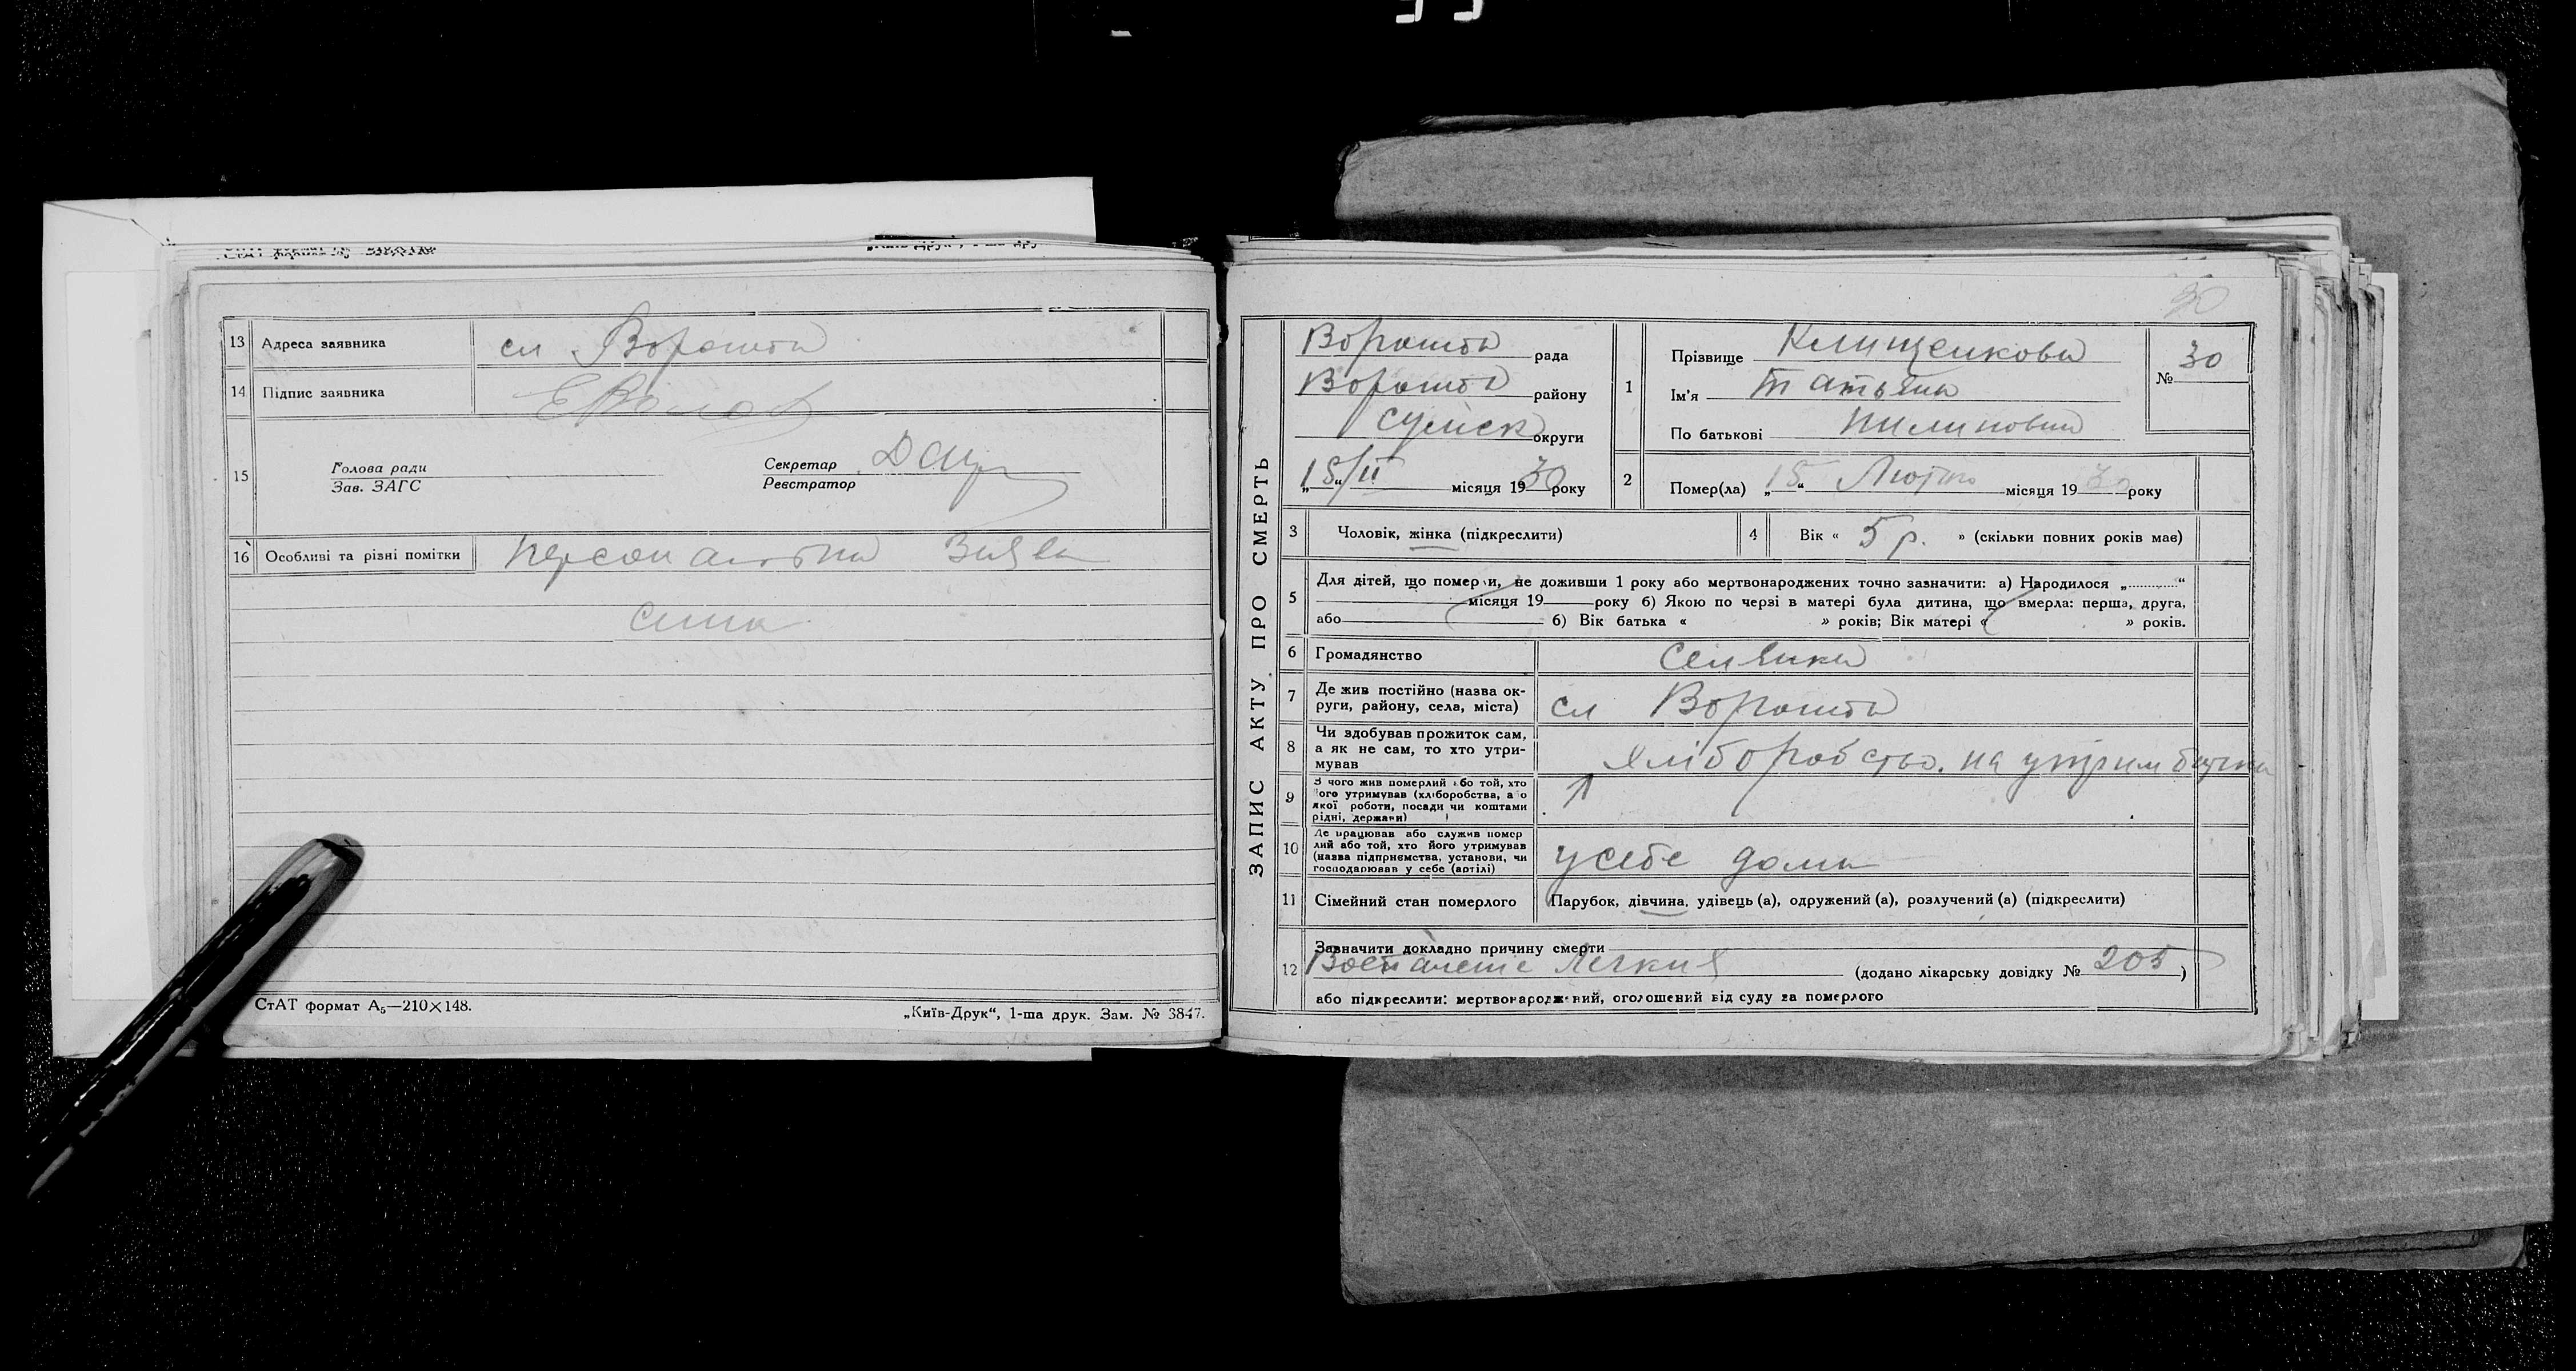 13 Адреса заявника сл Ворожба
14 Підпис заявника
15 Голова ради
Зав. ЗАГС
Секретар
Реєстратор
16 Особливі та різні помітки Персональна Заява
СтАТ формат А₅—210×148.
„Київ-Друк“, 1-ша друк. Зам. № 3847.
ЗАПИС АКТУ ПРО СМЕРТЬ
30
Ворожба рада
Ворожба району
Сумск округи
„15“/II місяця 1930 року
1 Прізвище Клищенкова
Ім'я Татьяна
По батькові Пилиповна
№ 30
2 Помер(ла) „15“ Лютого місяця 1930 року
3 Чоловік, жінка (підкреслити)
4 Вік « 5 р. » (скільки повних років має)
5 Для дітей, що померли, не доживши 1 року або мертвонароджених точно зазначити: а) Народилося „............“
місяця 19 року б) Якою по черзі в матері була дитина, що вмерла: перша, друга,
або б) Вік батька « » років; Вік матері « » років.
6 Громадянство Селянка
7 Де жив постійно (назва ок-
руги, району, села, міста) сл Ворожба
8 Чи здобував прожиток сам,
а як не сам, то хто утри-
мував хліборобство. на утрим батька
9 З чого жив померлий або той, хто
його утримував (хліборобства, або
якої роботи, посади чи коштами
рідні, держави)
10 Де працював або служив помер
лий або той, хто його утримував
(назва підприємства, установи, чи
господарював у себе (артілі) у себе дома
11 Сімейний стан померлого Парубок, дівчина, удівець (а), одружений (а), розлучений (а) (підкреслити)
12 Зазначити докладно причину смерти
Воспаление Легких (додано лікарську довідку № 205)
або підкреслити: мертвонароджений, оголошений від суду за померлого